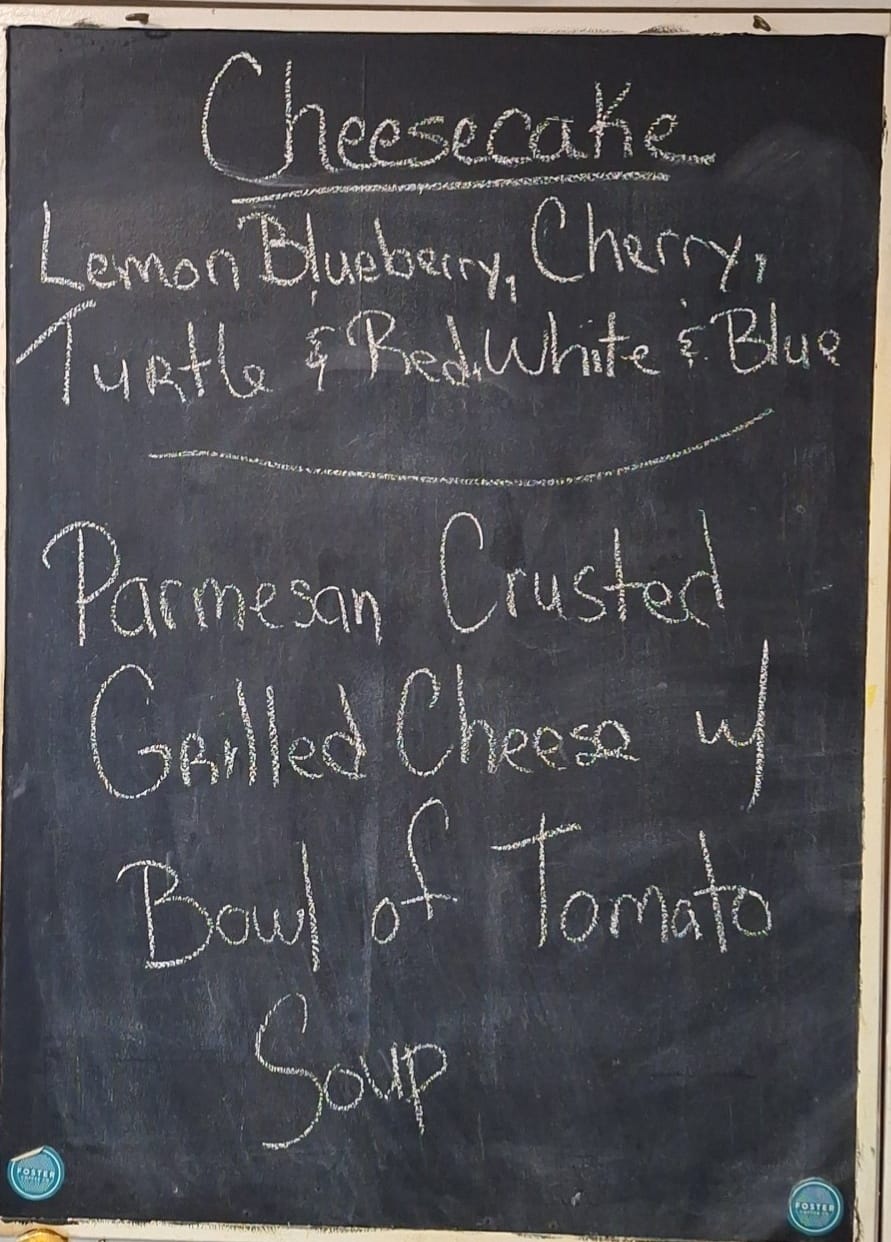 Cheesecake
Lemon Blueberry, Cherry,
Turtle & Red, White & Blue
Parmesan Crusted
Grilled Cheese w/
Bowl of Tomato
Soup
FOSTER
COFFEE CO.
FOSTER
COFFEE CO.